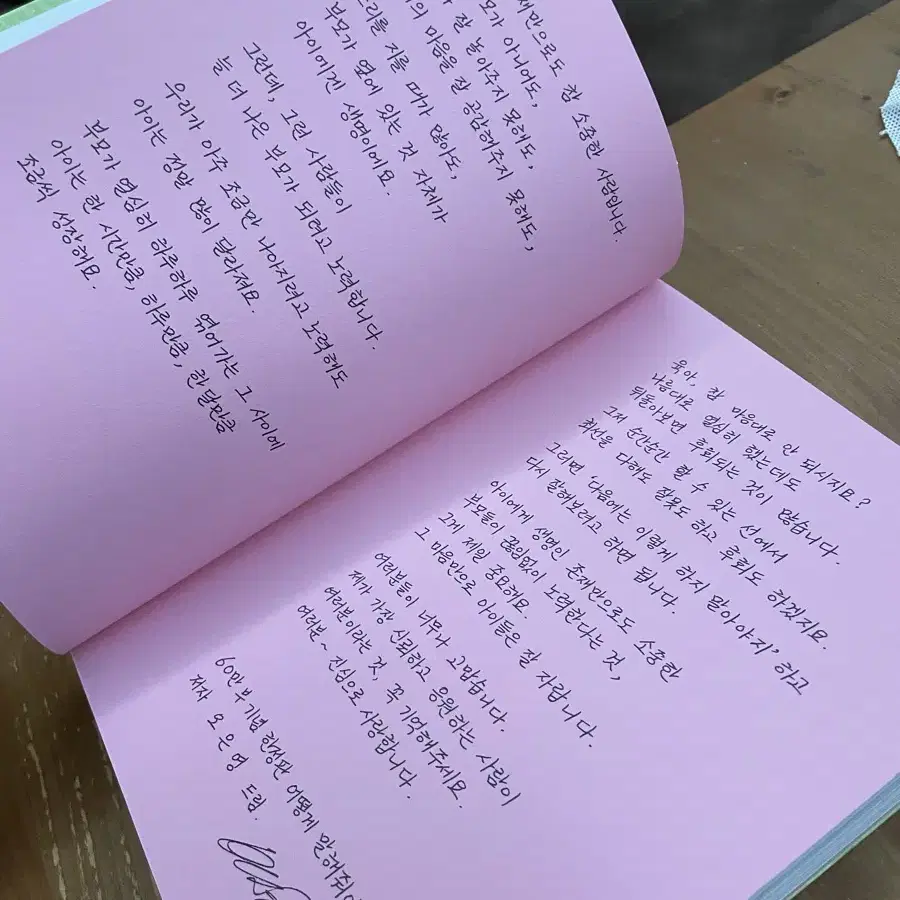 참 소중한 사람입니다.
아니어도,
잘 놀아주지 못해도,
마음을 잘 공감해주지 못해도,
지를 때가 많아도,
부모가 옆에 있는 것 자체가
아이에겐 생명이에요.
그런데, 그런 사람들이
늘 더 나은 부모가 되려고 노력합니다.
우리가 아주 조금만 나아지려고 노력해도
아이는 정말 많이 달라져요.
부모가 열심히 하루하루 엮어가는 그 사이에
아이는 한 시간만큼, 하루만큼, 한 달만큼
조금씩 성장해요.
육아, 참 마음대로 안 되시지요?
나름대로 열심히 했는데도
뒤돌아보면 후회되는 것이 많습니다.
그저 순간순간 할 수 있는 선에서
최선을 다해도 잘못도 하고 후회도 하겠지요.
그러면 '다음에는 이렇게 하지 말아야지' 하고
다시 잘해보려고 하면 됩니다.
아이에게 생명인 존재만으로도 소중한
부모들이 끊임없이 노력한다는 것,
그게 제일 중요해요.
그 마음만으로 아이들은 잘 자랍니다.
여러분들이 너무나 고맙습니다.
제가 가장 신뢰하고 응원하는 사람이
여러분이라는 것, 꼭 기억해주세요.
여러분~ 진심으로 사랑합니다.
60만 부 기념 한정판 어떻게 말해줘야
저자 오은영 드림.